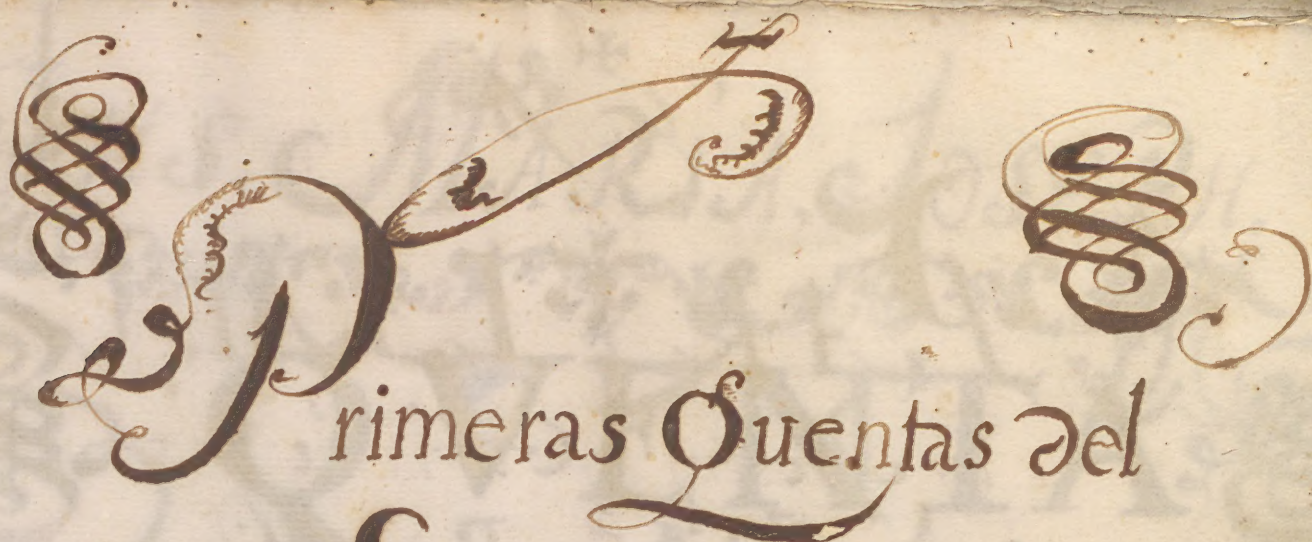 Primeras Quentas del